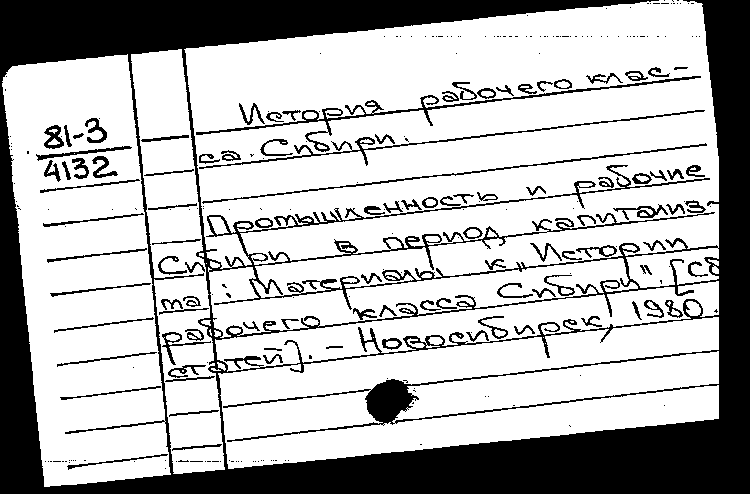 История рабочего клас-
81-3
са Сибири.
4132
Промышленность и рабочие
Сибири в период капитализ-
ма : Материалы к „Истории
рабочего класса Сибири". [Сб
статей]. – Новосибирск, 1980.